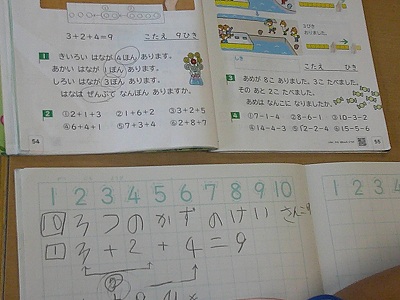 3+2+4=9 こたえ 9ひき
1 きいろい はなが 4ほん あります。
あかい はなが 1ぽん あります。
しろい はなが 3ぼん あります。
はなは ぜんぶで なんぼん ありますか。
2 ①2+1+3 ②1+6+2 ③3+2+5
④6+4+1 ⑤7+3+4 ⑥2+8+7
54
こたえ ひき
3 あめが 8こ ありました。3こ たべました。
その あと 2こ たべました。
あめは なんこに なりましたか。
4 ①7-1-4 ②8-6-1 ③10-3-2
④14-4-3 ⑤12-2-4 ⑥15-5-6
55
1 2 3 4 5 6 7 8 9 10
10 3つのかずのけいさん
1 3+2+4=9
1 2 3 4